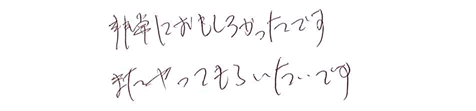 非常におもしろかったです
またやってもらいたいです